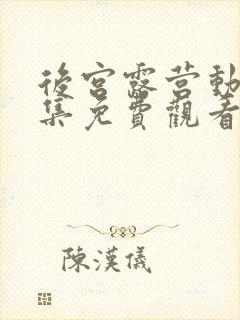 後宮露营動
集免費觀看
陳漢儀